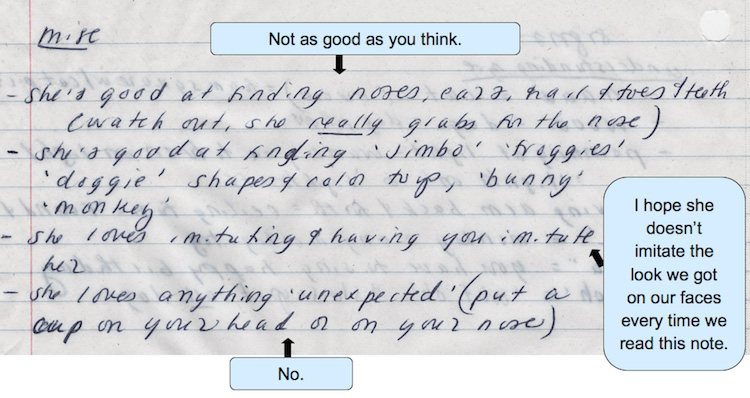 misc
Not as good as you think.
- she's good at finding noses, ears, hair & toes & teeth
(watch out, she really grabs for the nose)
- she's good at finding 'Jimbo' 'froggies'
'doggie' shapes & color toys, 'bunny'
'monkey'
- she loves imitating & having you imitate
her
- she loves anything 'unexpected' (put a
cup on your head or on your nose)
I hope she
doesn't
imitate the
look we got
on our faces
every time we
read this note.
No.